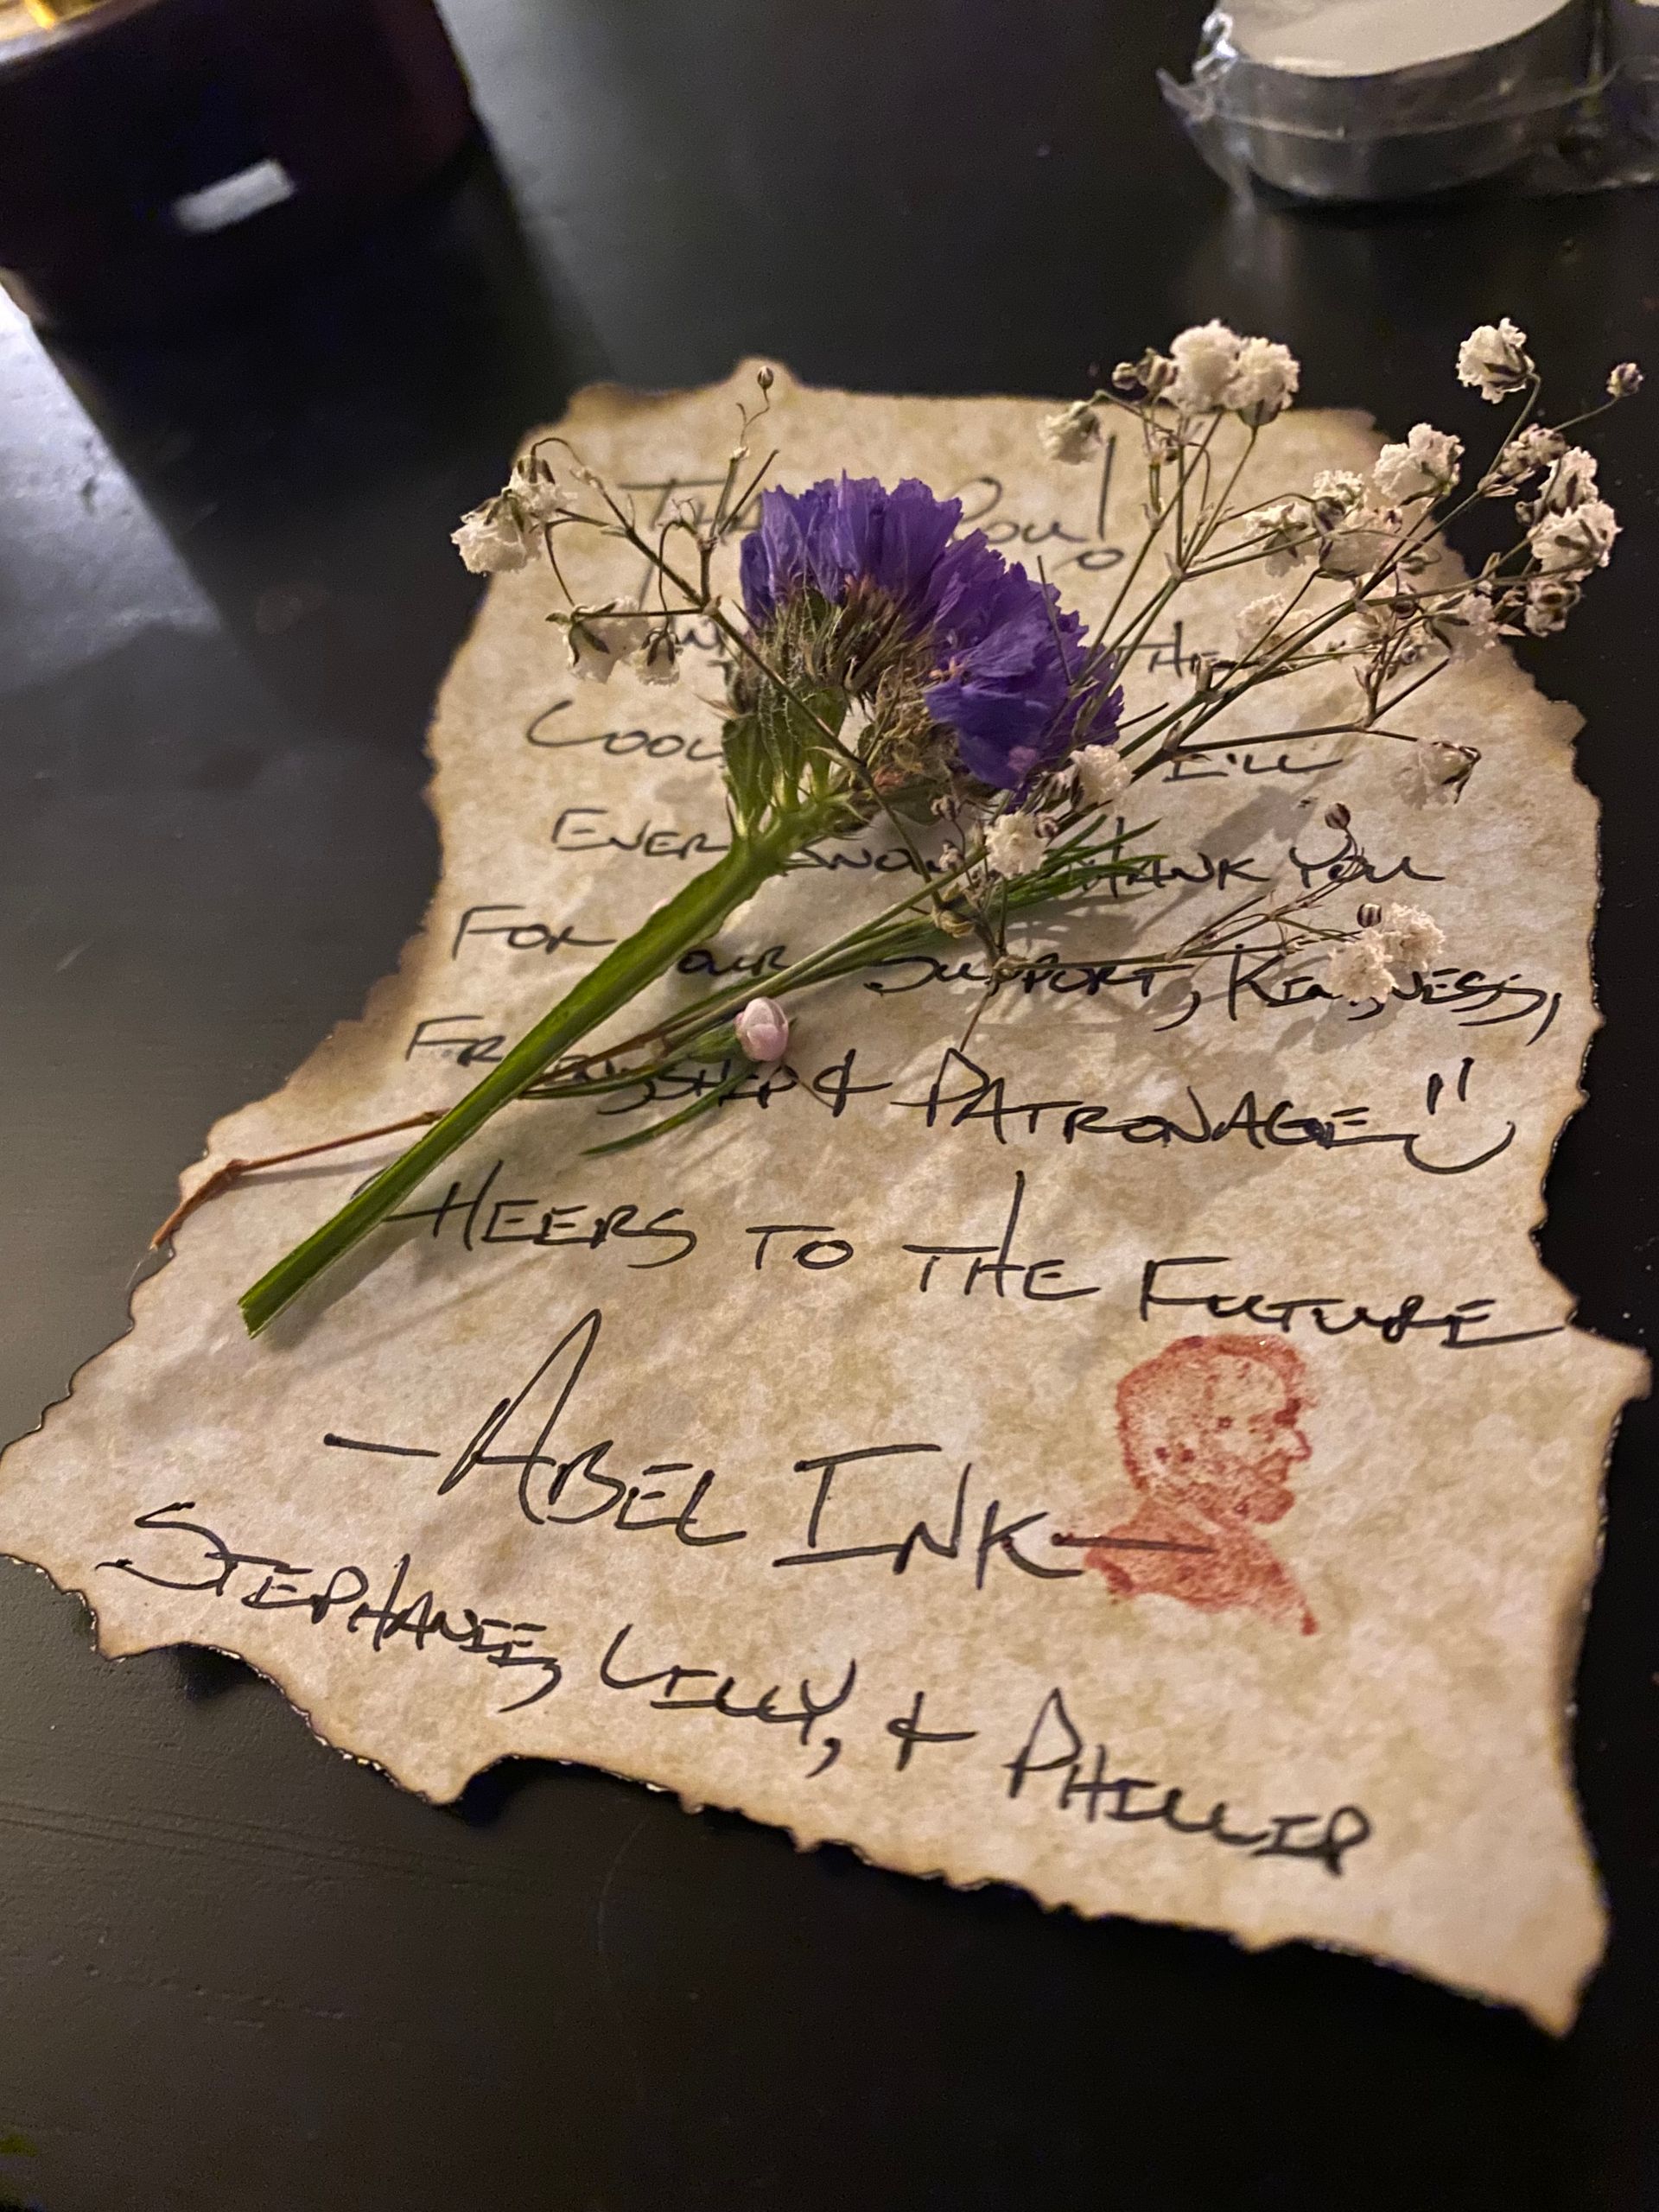 Thank You!
The
Cool I'll
Ever Know Thank You
For Your Support, Kindness,
Friendship & Patronage
Cheers to the Future
—Abel Ink—
Stephanie, Lilly, & Phillip